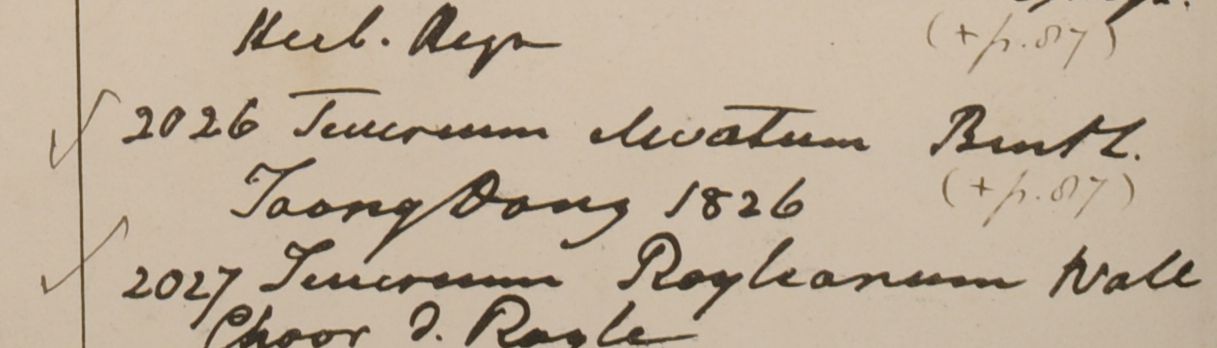 Herb. Heyn
(+p.87)
2026 Teucrium clivatum Benth.
Taong Dong 1826
(+p.87)
2027 Teucrium Royleanum Wall
Choor D. Royle